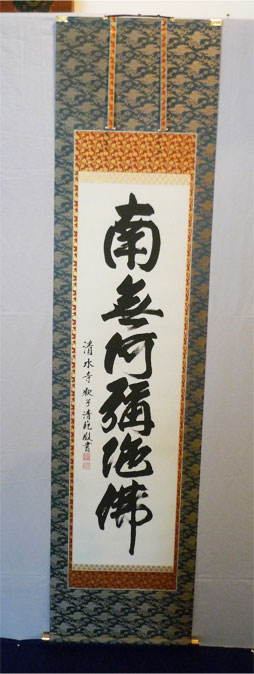 南無阿彌陀佛
清水寺 釈子清範敬書